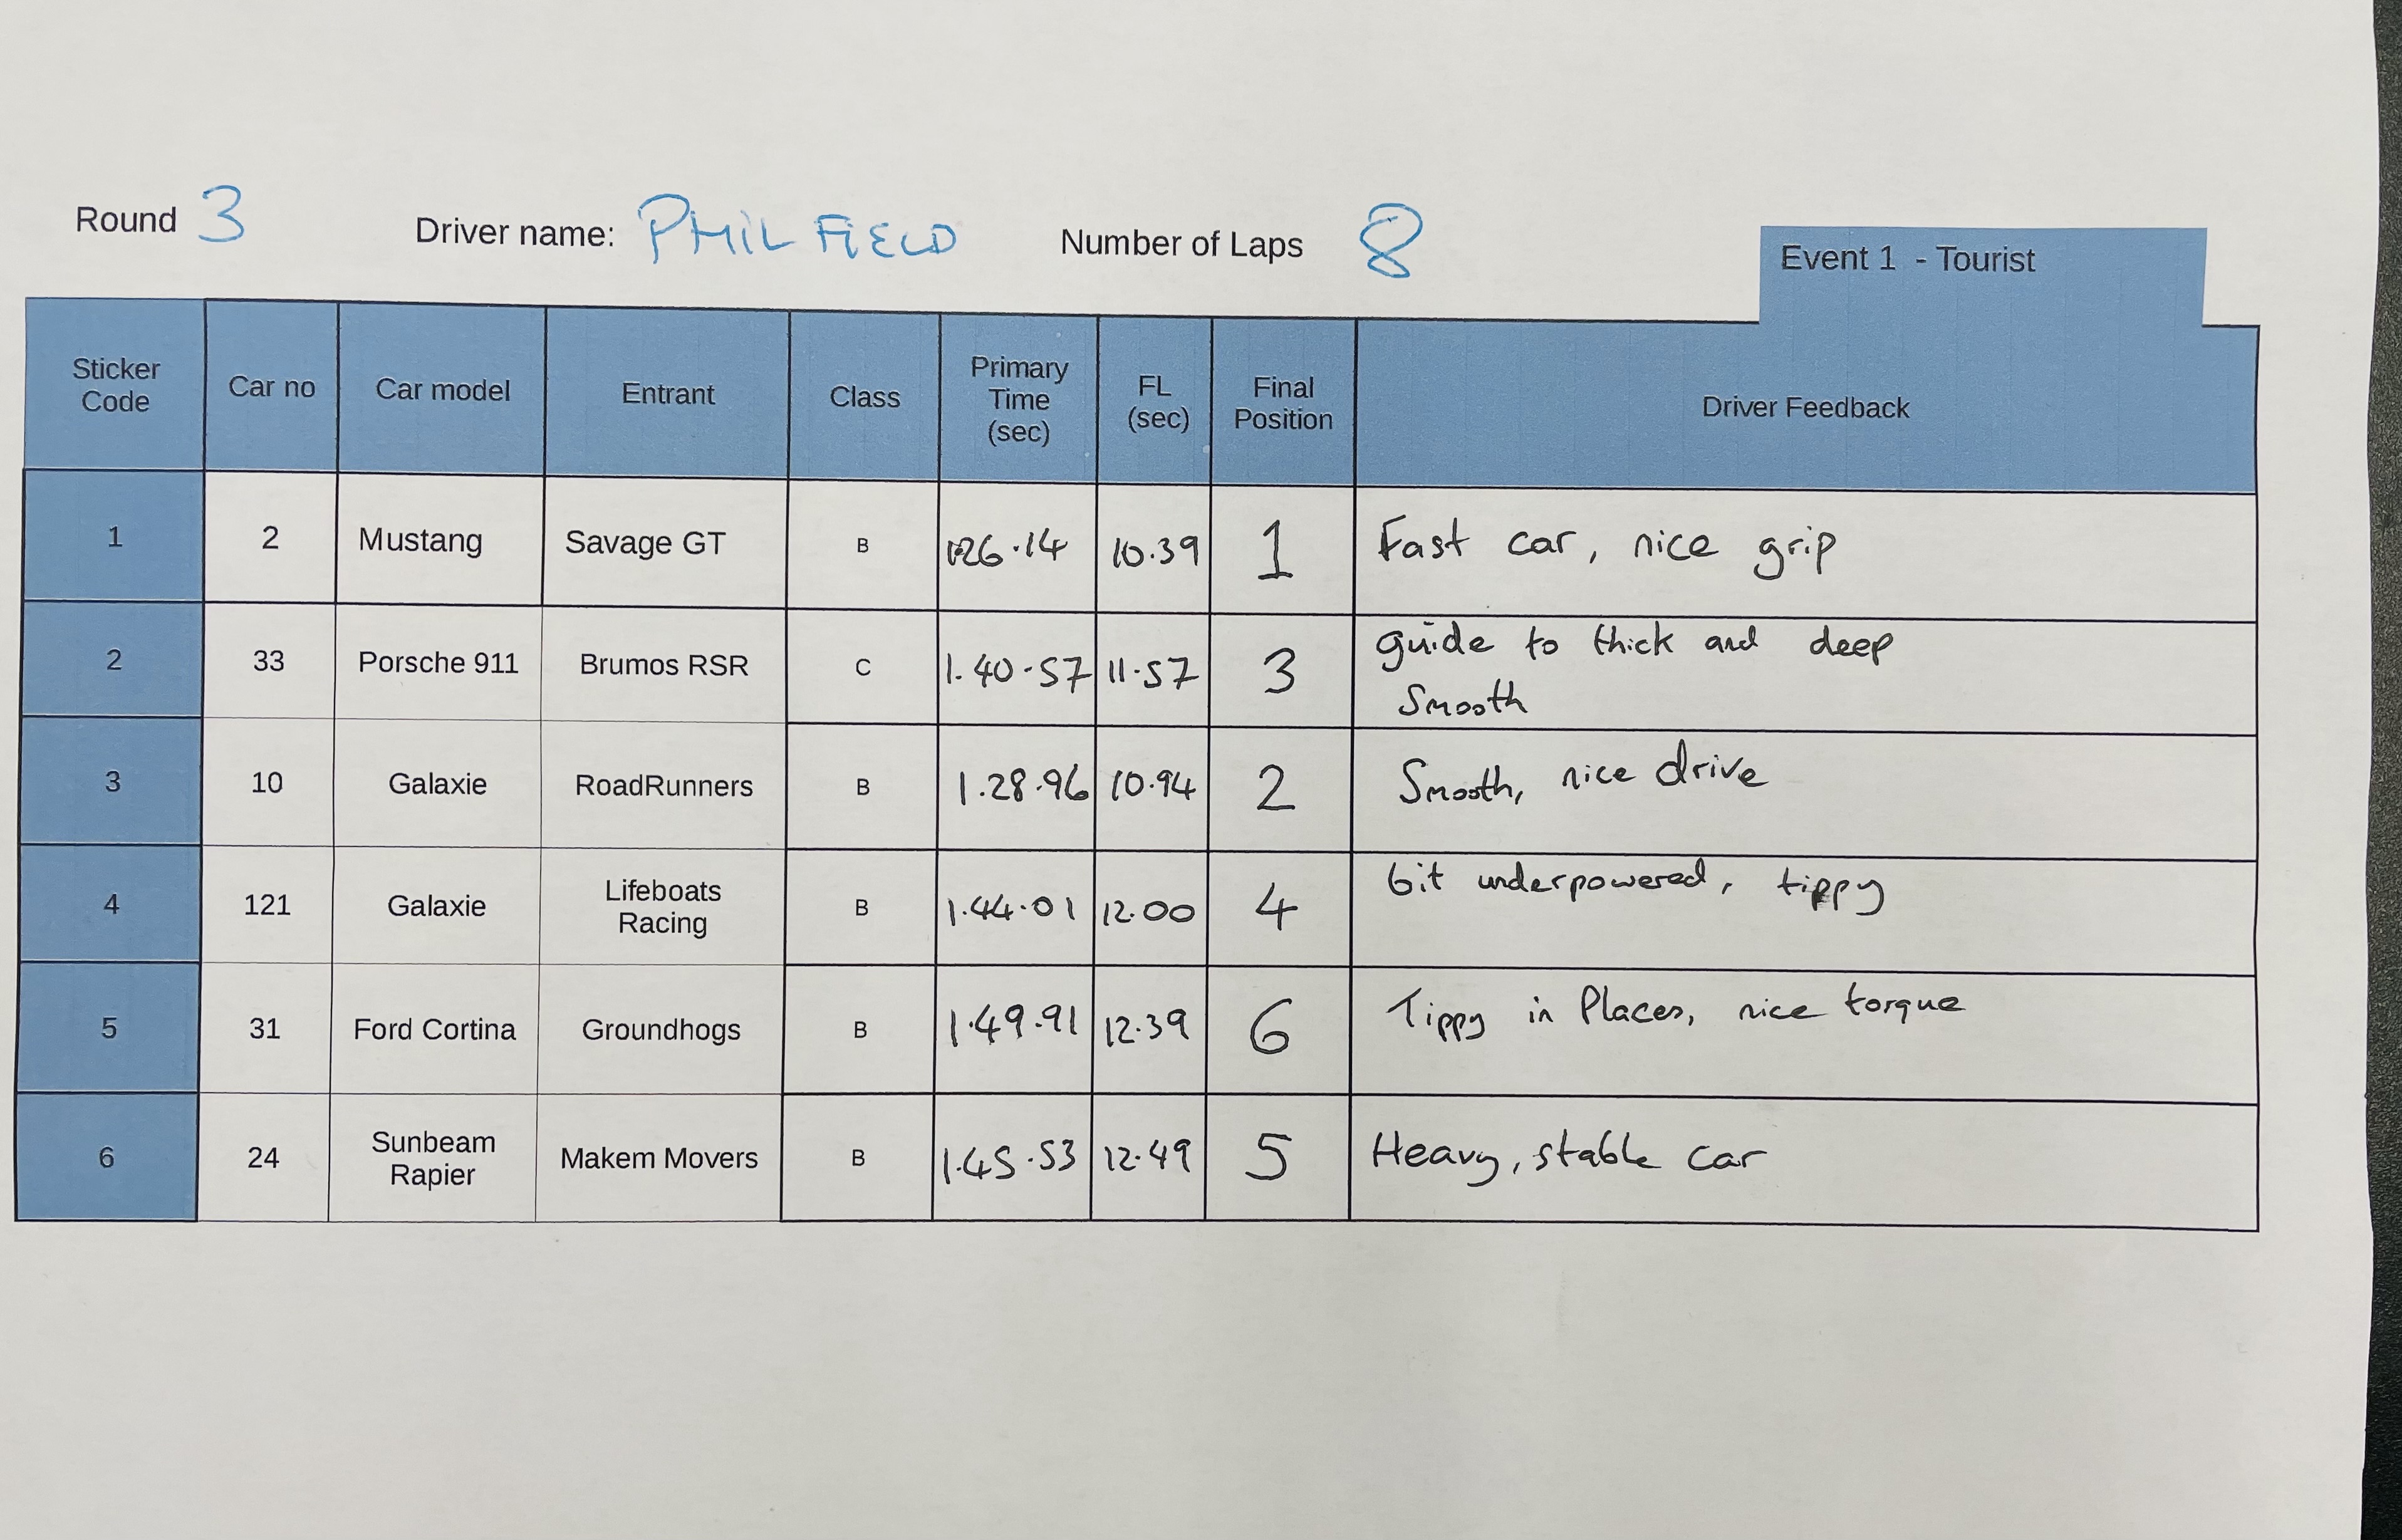 Round 3 Driver name: PHIL FIELD Number of Laps 8
Event 1 - Tourist
Sticker Code Car no Car model Entrant Class Primary Time (sec) FL (sec) Final Position Driver Feedback
1 2 Mustang Savage GT B 1.26.14 10.39 1 Fast car, nice grip
2 33 Porsche 911 Brumos RSR C 1.40.57 11.57 3 guide to thick and deep
Smooth
3 10 Galaxie RoadRunners B 1.28.96 10.94 2 Smooth, nice drive
4 121 Galaxie Lifeboats Racing B 1.44.01 12.00 4 bit underpowered, tippy
5 31 Ford Cortina Groundhogs B 1.49.91 12.39 6 Tippy in Places, nice torque
6 24 Sunbeam Rapier Makem Movers B 1.45.53 12.49 5 Heavy, stable car